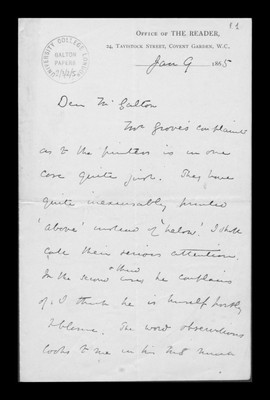 11
UNIVERSITY COLLEGE LONDON
GALTON
PAPERS
OFFICE OF THE READER,
24, TAVISTOCK STREET, COVENT GARDEN, W.C.
Jan 9 1865
Dear Mr Galton
Mr Grove's complaint
as to the printers is in one
case quite just. They have
quite inexcusably printed
'above' instead of 'below'. I shall
call their serious attention.
In the second case he complains
of, I think he is himself partly
to blame. The word observations
looks to me in his